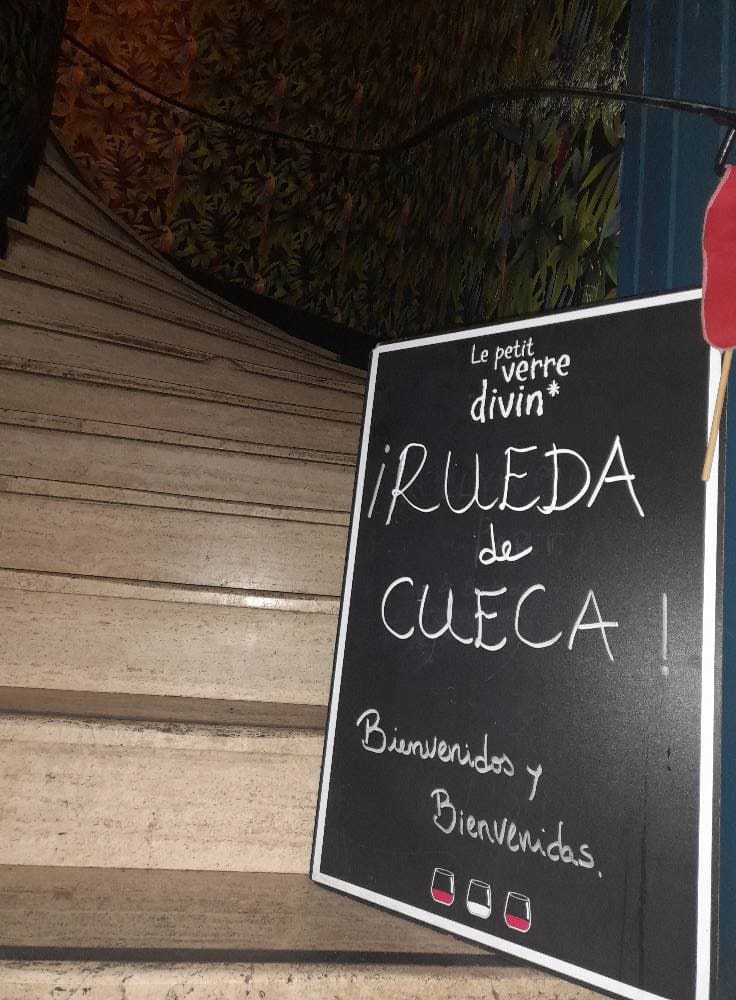 Le petit
verre
divin*
¡RUEDA
de
CUECA!
Bienvenidos y
Bienvenidas.